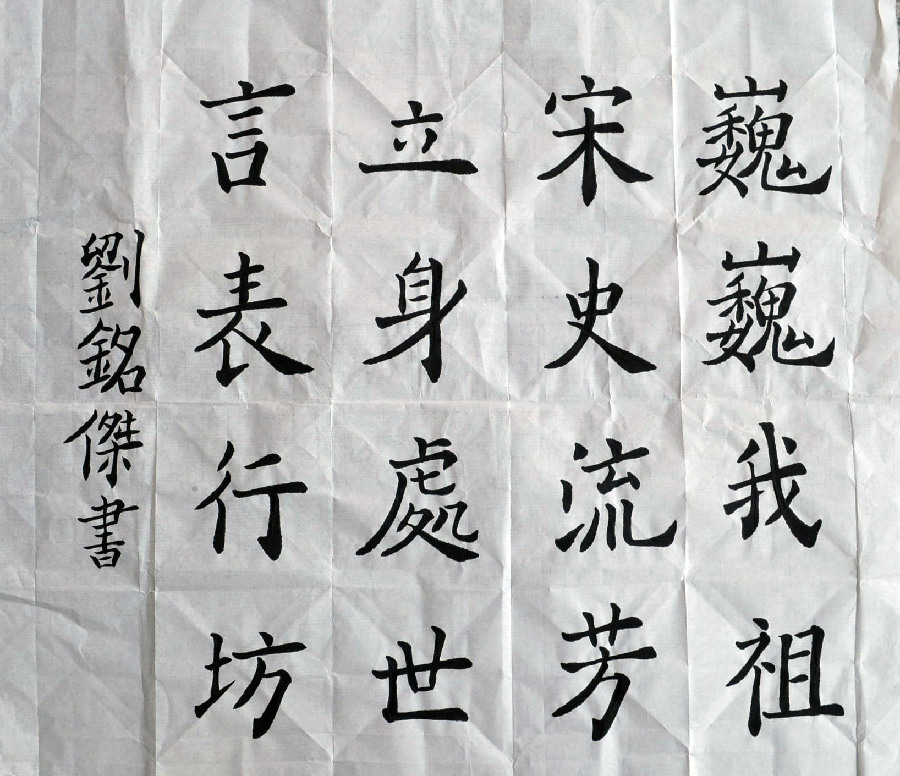 巍巍我祖
宋史流芳
立身處世
言表行坊
劉銘傑書